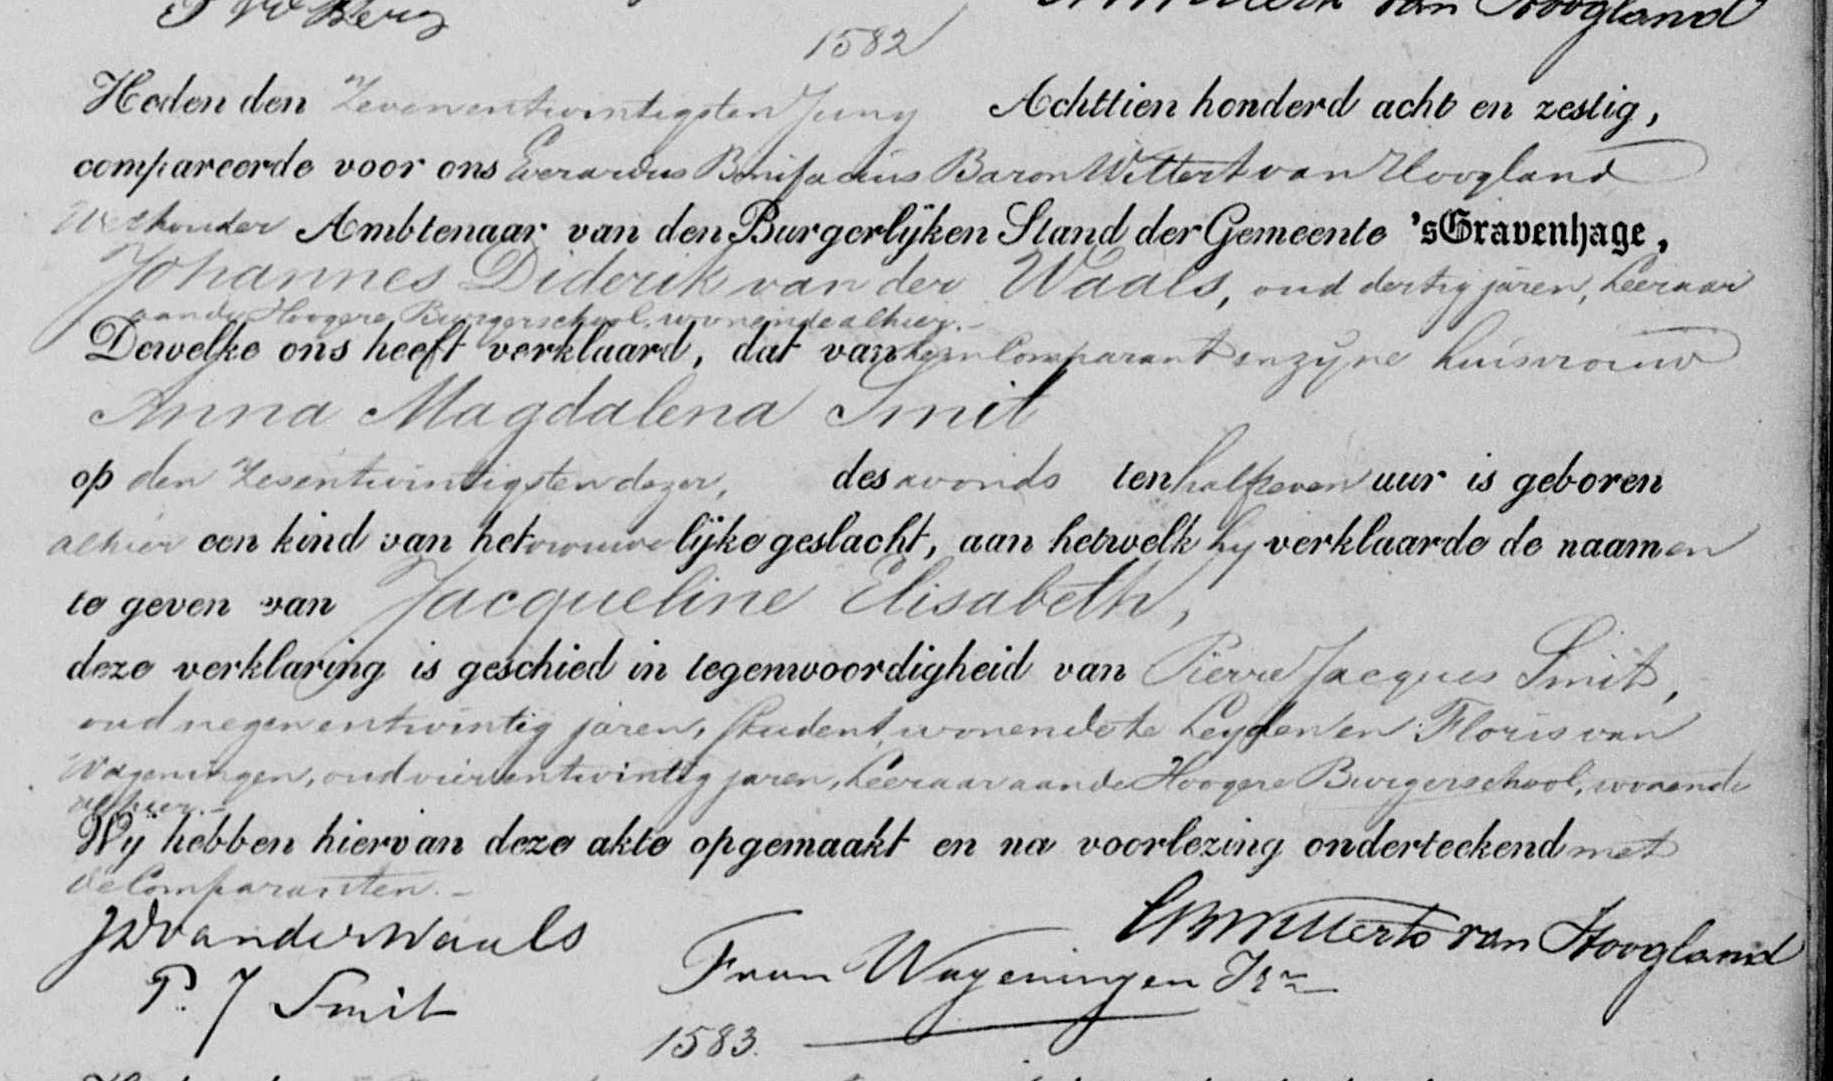 van Hoogland
1582
Heden den Zevenentwintigsten Juny Achttien honderd acht en zestig,
compareerde voor ons Everardus Bonifacius Baron Wittert van Hoogland
Wethouder Ambtenaar van den Burgerlijken Stand der Gemeente 'sGravenhage,
Johannes Diderik van der Waals, oud dertig jaren, Leeraar
aan de Hoogere Burgerschool, wonende alhier.-
Dewelke ons heeft verklaard, dat van hem Comparant en zyne huisvrouw
Anna Magdalena Smit
op den zesentwintigsten dezer, des avonds ten half zeven uur is geboren
alhier een kind van het vrouwelijke geslacht, aan hetwelk hy verklaarde de naamen
te geven van Jacqueline Elisabeth,
deze verklaring is geschied in tegenwoordigheid van Pierre Jacques Smit,
oud negenentwintig jaren, student, wonende te Leyden en Floris van
Wageningen, oud vierentwintig jaren, Leeraar aan de Hoogere Burgerschool, wonende
alhier.-
Wij hebben hiervan deze akte opgemaakt en na voorlezing onderteekend met
de Comparanten.-
JD van der Waals
EB Wittert van Hoogland
P. J Smit
F van Wageningen Jzn
1583.